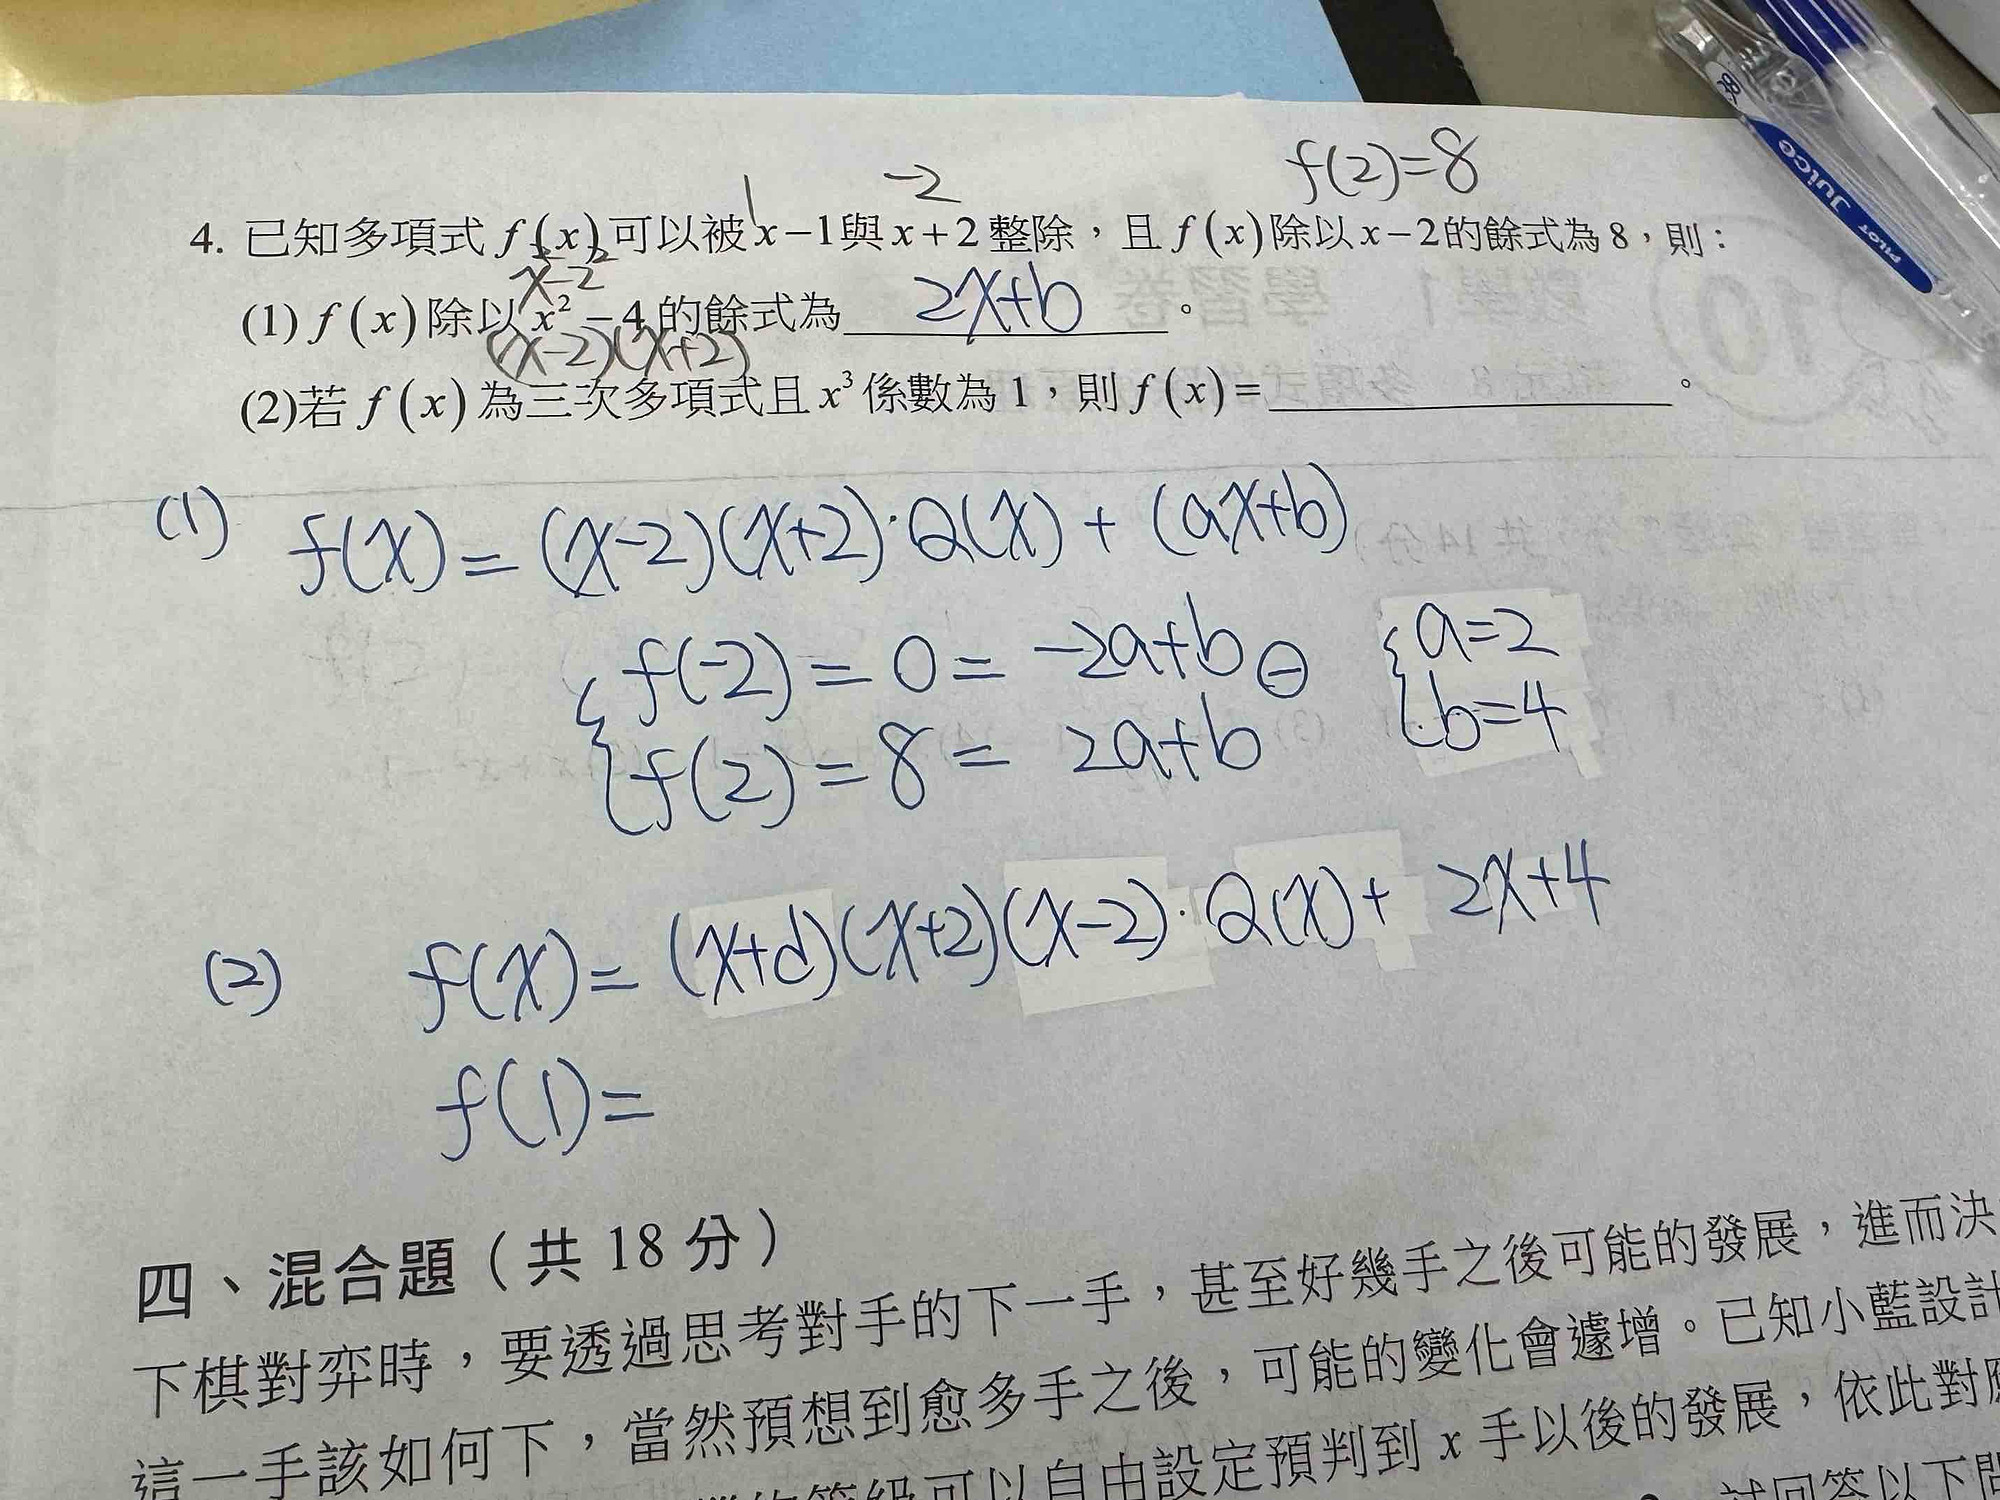 f(2)=8
1 -2
4. 已知多項式 f(x) 可以被 x-1 與 x+2 整除，且 f(x) 除以 x-2 的餘式為 8，則：
x-2
(1) f(x) 除以 x²-4 的餘式為 2x+b 。
(x-2)(x+2)
(2)若 f(x) 為三次多項式且 x³ 係數為 1，則 f(x)= 。
(1) f(x)=(x-2)(x+2)·Q(x)+(ax+b)
f(-2)=0=-2a+b ⊖ a=2
f(2)=8=2a+b b=4
(2) f(x)=(x+d)(x+2)(x-2)·Q(x)+2x+4
f(1)=
四、混合題（共 18 分）
下棋對弈時，要透過思考對手的下一手，甚至好幾手之後可能的發展，進而決
這一手該如何下，當然預想到愈多手之後，可能的變化會遽增。已知小藍設計
可以自由設定預判到 x 手以後的發展，依此對應
試回答以下問
Juice
PILOT
38